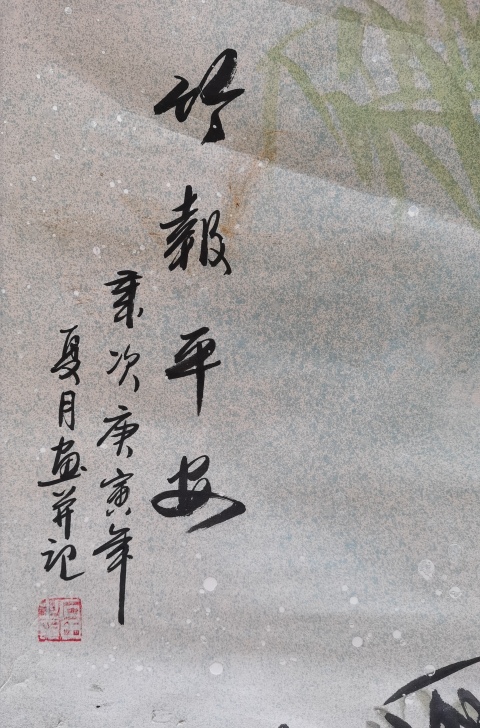 竹報平安
歲次庚寅年
夏月畫并記